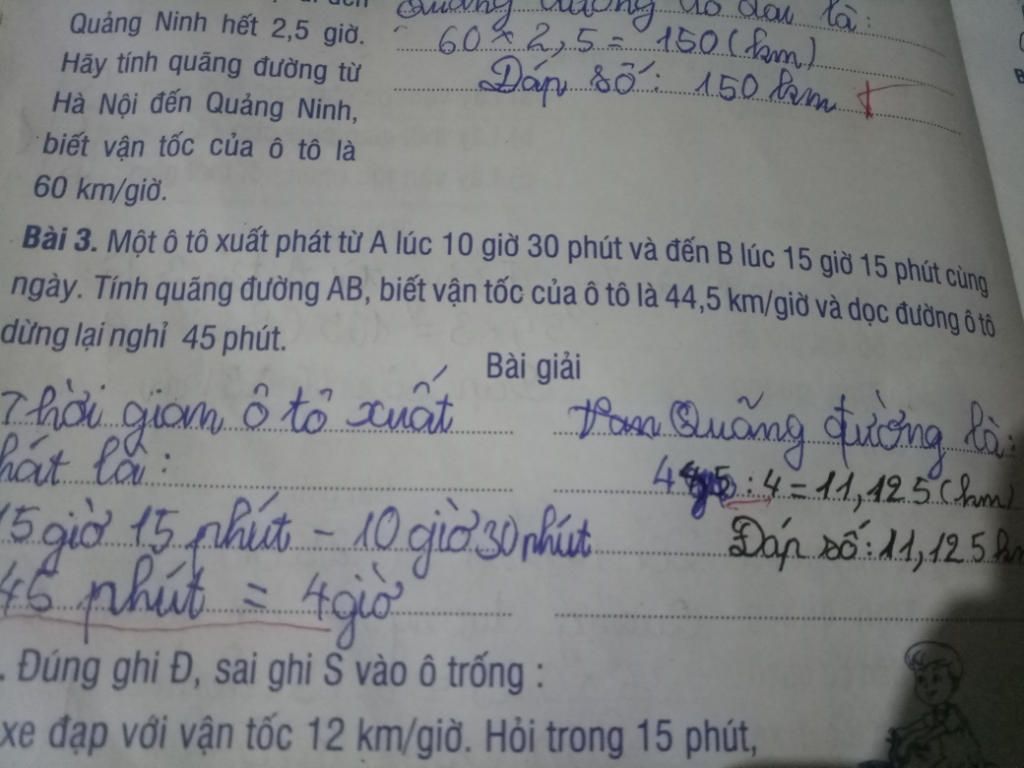 Quảng Ninh hết 2,5 giờ.
Hãy tính quãng đường từ
Hà Nội đến Quảng Ninh,
biết vận tốc của ô tô là
60 km/giờ.
là:
60 × 2,5 = 150 (km)
Đáp số: 150 km
Bài 3. Một ô tô xuất phát từ A lúc 10 giờ 30 phút và đến B lúc 15 giờ 15 phút cùng
ngày. Tính quãng đường AB, biết vận tốc của ô tô là 44,5 km/giờ và dọc đường ô tô
dừng lại nghỉ 45 phút.
Bài giải
Thời gian ô tô xuất
hát là:
15 giờ 15 phút - 10 giờ 30 phút
45 phút = 4 giờ
Quãng đường là:
: 4 = 11,125 (km)
Đáp số: 11,125 km
. Đúng ghi Đ, sai ghi S vào ô trống :
xe đạp với vận tốc 12 km/giờ. Hỏi trong 15 phút,